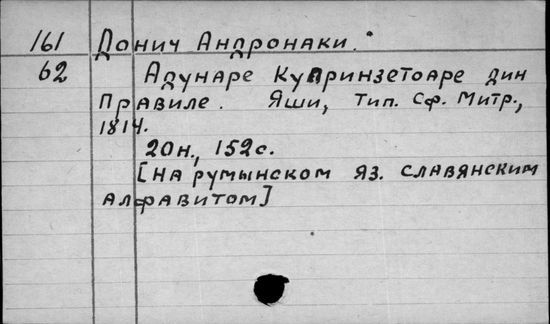 161 Донич Андронаки.
62 Адунаре Купринзетоаре дин
Правиле. Яши, тип. Сф. Митр.,
1814.
20н., 152с.
[на румынском яз. славянским
алфавитом]